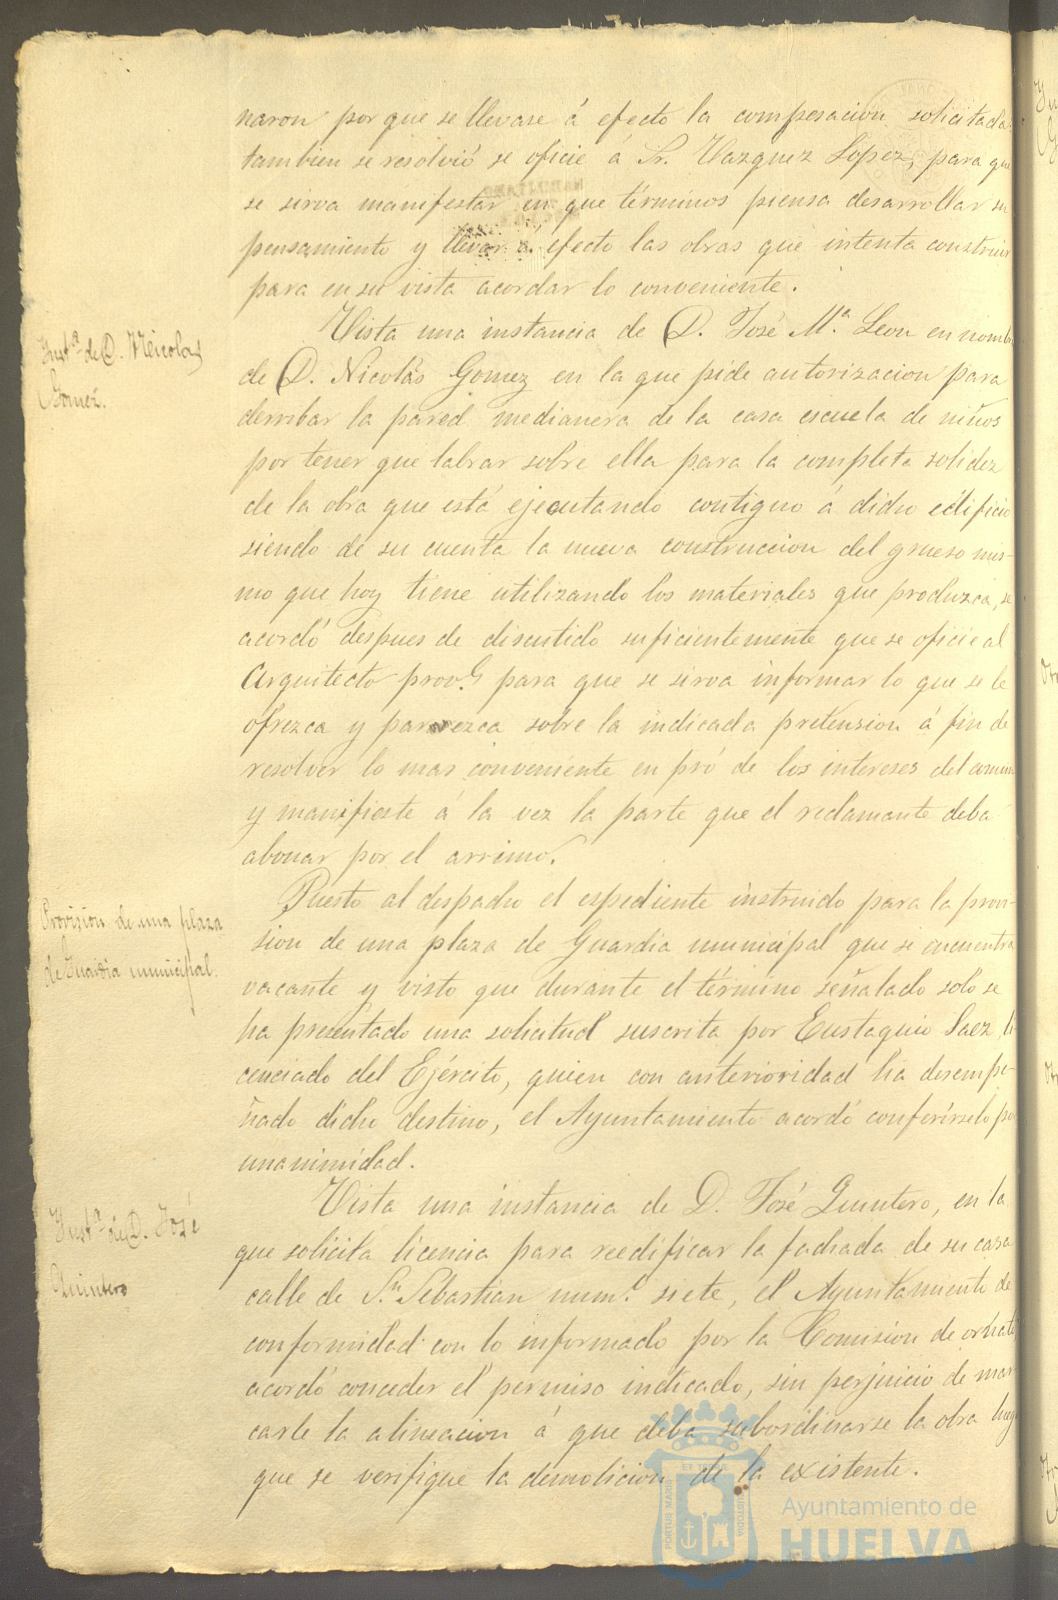 naron porque se llevase á efecto la compesacion solicitada
tambien se resolvió se oficie á Sr. Vazquez Lopez, para que
se sirva manifestar en que términos piensa desarrollar su
pensamiento y llevar á efecto las obras que intenta construir
para en su vista acordar lo conveniente.
Inst.ª de D. Nicolas
Gomez.
Vista una instancia de D. José M.ª Leon en nomb
de D. Nicolás Gomez en la que pide autorizacion para
derribar la pared medianera de la casa escuela de niños
por tener que labrar sobre ella para la completa solidez
de la obra que está ejecutando contiguo á dicho edificio
siendo de su cuenta la nueva construccion del grueso mis-
mo que hoy tiene utilizando los materiales que produzca, se
acordó despues de discutido suficientemente que se oficie al
Arquitecto prov.l para que se sirva informar lo que se le
ofrezca y parezca sobre la indicada pretension á fin de
resolver lo mas conveniente en pró de los intereses del comun
y manifieste á la vez la parte que el reclamante deba
abonar por el arrimo.
Provision de una plaza
de Guardia municipal.
Puesto al despacho el espediente instruido para la provi-
sion de una plaza de Guardia municipal que se encuentra
vacante y visto que durante el término señalado solo se
ha presentado una solicitud suscrita por Eustaquio Saez, li
cenciado del Ejército, quien con anterioridad ha desempe-
ñado dicho destino, el Ayuntamiento acordó conferirselo por
unanimidad.
Inst.ª de D. José
Quintero
Vista una instancia de D. José Quintero, en la
que solicita licencia para reedificar la fachada de su casa
calle de S.n Sebastian num.º siete, el Ayuntamiento de
conformidad con lo informado por la Comision de ornato
acordó conceder el permiso indicado, sin perjuicio de mar
carle la alineacion á que deba subordinarse la obra luego
que se verifique la demolicion de la existente.
Ayuntamiento de
HUELVA
PORTUS MARIS
CUSTODIA